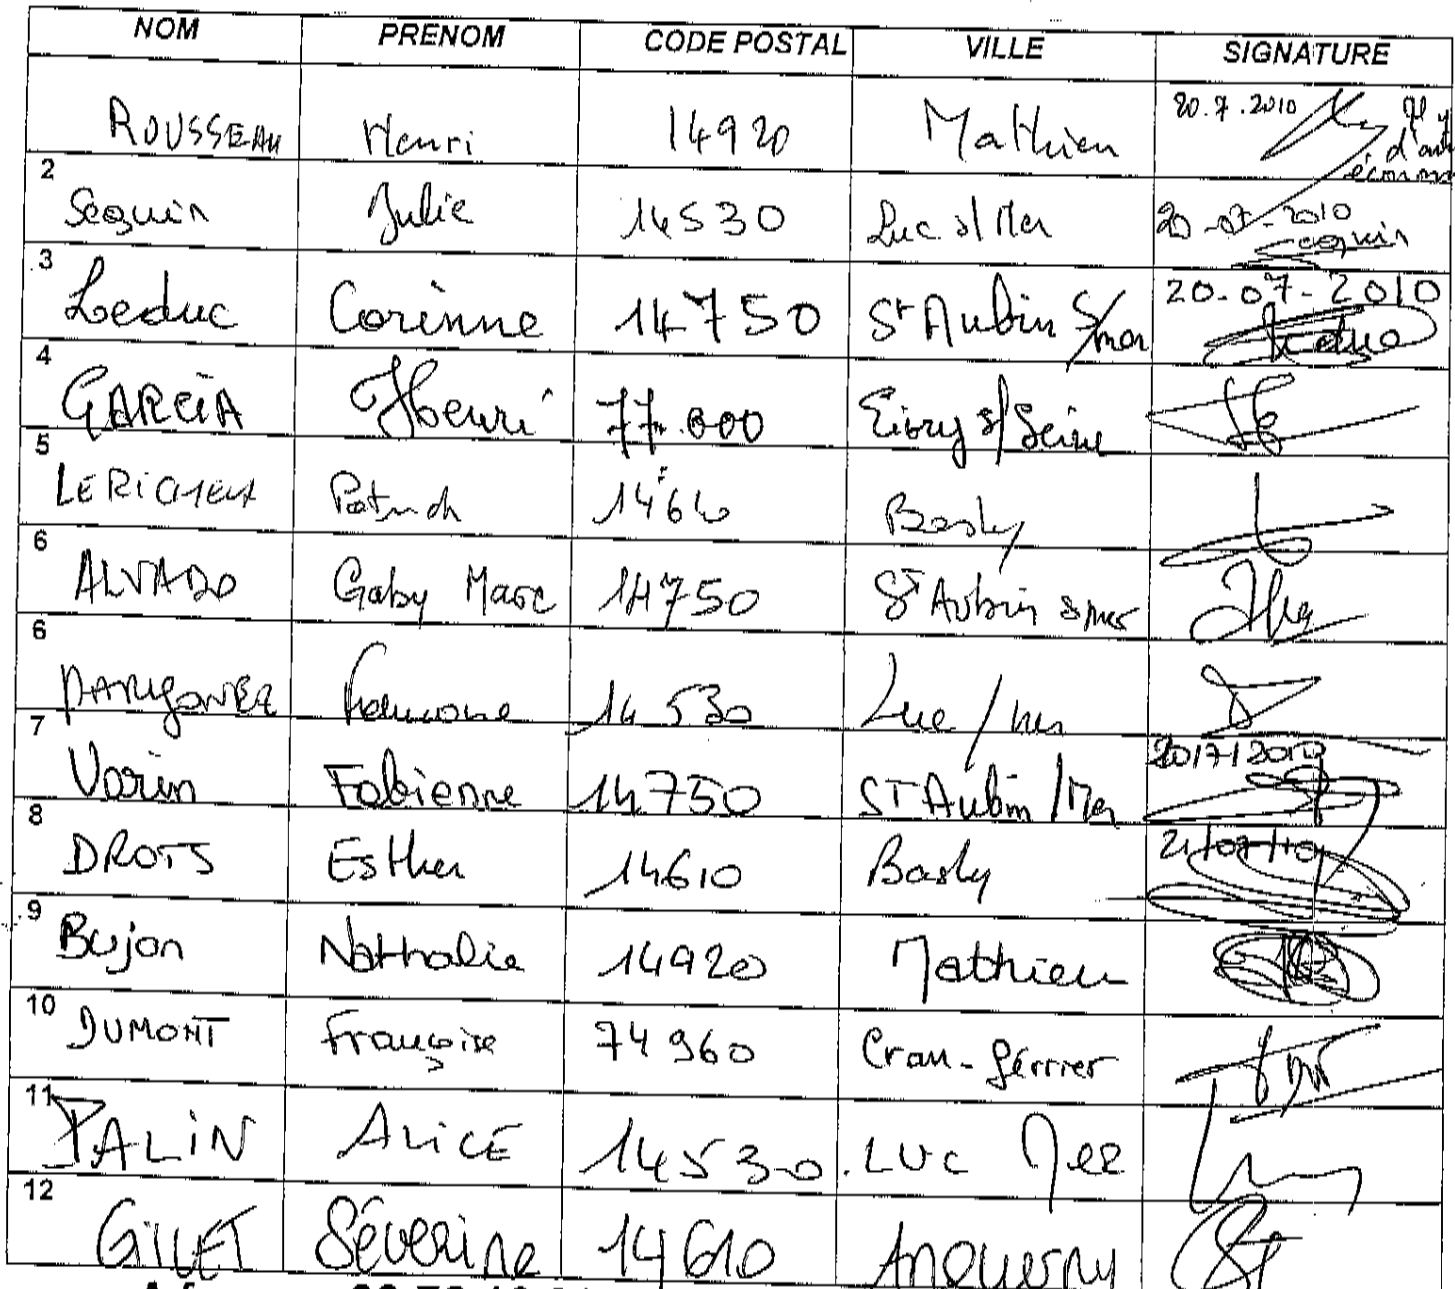 NOM PRENOM CODE POSTAL VILLE SIGNATURE
ROUSSEAU Henri 14920 Mathieu 20.7.2010
2 Seguin Julie 14530 Luc s/Mer 20-07-2010 Seguin
3 Leduc Corinne 14750 St Aubin S/mer 20-07-2010 Leduc
4 GARCIA Henri 77.000 s/Seine
5 Basly
6 ALVADO Gaby Marc 14750 St Aubin s mer
6 14 530 Luc / mer
7 Varin Fabienne 14750 ST Aubin / Mer 20/7/2010
8 DROTS Esther 14610 Basly 21/07/10
9 Bujon Nathalie 14920 Mathieu
10 DUMONT Françoise 74960 Cran-Gévrier
11 PALIN ALICE 14530 LUC Mer
12 GILLET Séverine 14610 Anguerny